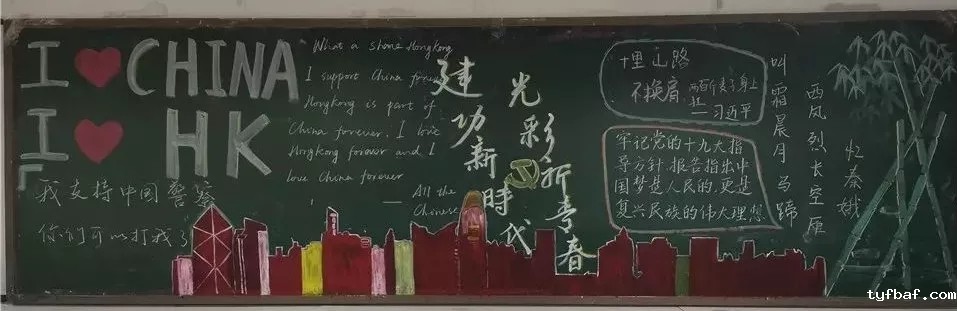 I ❤ CHINA
I ❤ HK
我支持中国警察
你们可以打我了
What a shame Hongkong
I support China forever
Hongkong is part of
China forever. I love
Hongkong forever and I
love China forever
— All the
Chinese
建功新時代
光彩折青春
十里山路
不换肩
两百斤麦子身上
扛
— 习近平
牢记党的十九大指
导方针,报告指出中
国梦是人民的,更是
复兴民族的伟大理想
忆秦娥
西风烈长空雁
叫霜晨月马蹄
tyfbaf.com